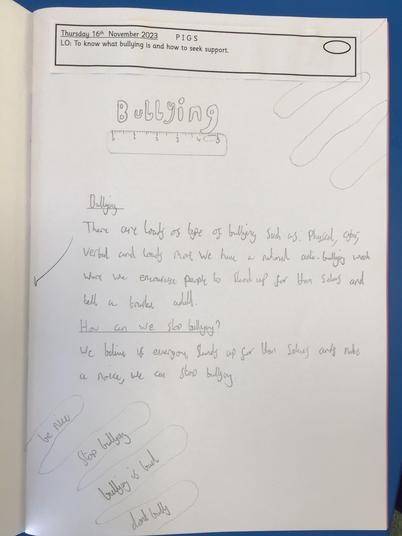 Thursday 16th November 2023 PIGS
LO: To know what bullying is and how to seek support.
Bullying
1 2 3 4 5
Bullying
There are loads of type of bullying such as. Physical, cyber,
verbal and loads more we have a national anti-bullying week
where we encourage people to stand up for them selves and
tell a trusted adult.
How can we stop bullying?
We believe if everyone stands up for them selves and make
a notice, we can stop bullying
be nice
stop bullying
bullying is bad
dont bully